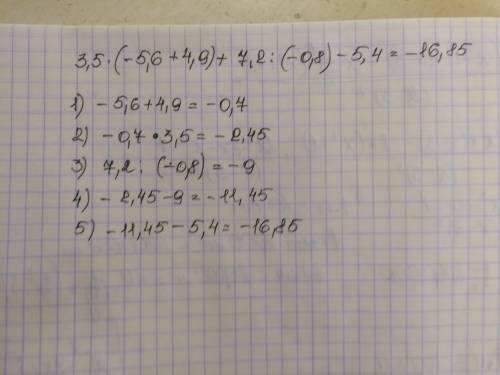 3,5·(-5,6+4,9)+ 7,2:(-0,8)-5,4=-16,85
1) -5,6+4,9=-0,7
2) -0,7•3,5=-2,45
3) 7,2: (-0,8)=-9
4) -2,45-9=-11,45
5) -11,45-5,4=-16,85